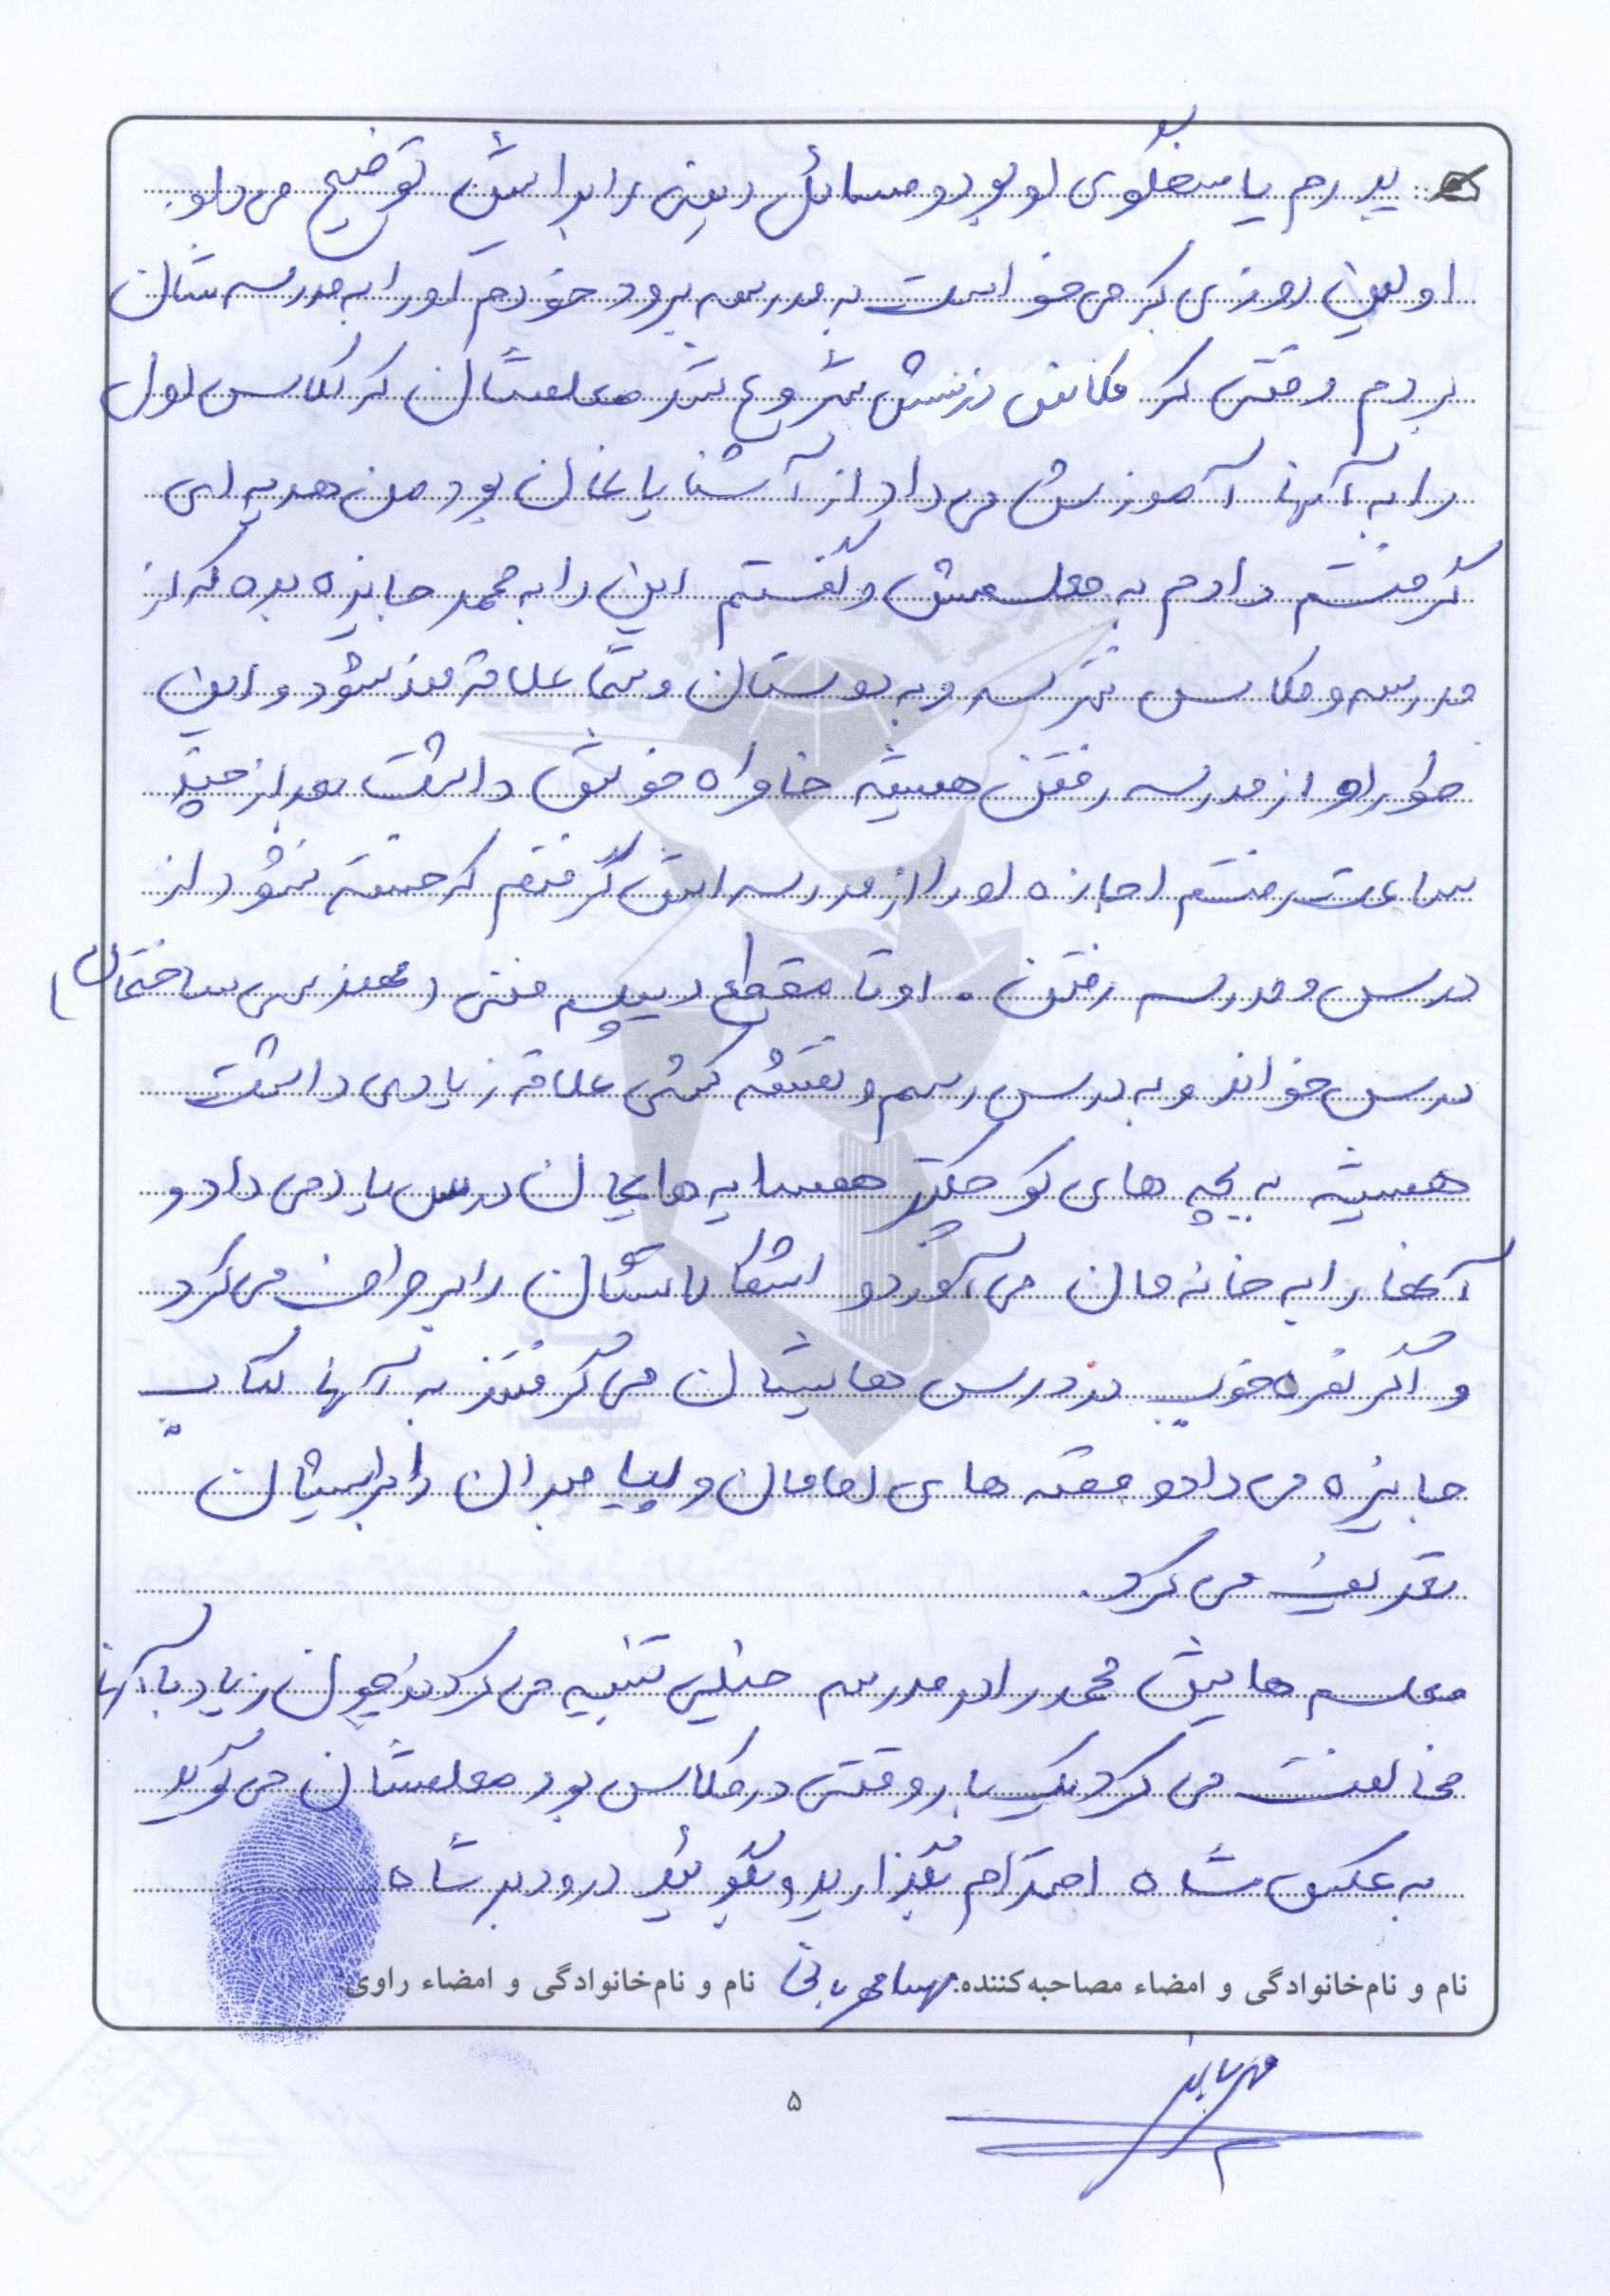 پدرم پاسخگوی او بود و مسائل دینی را برایش توضیح می‌داد.
اولین روزی که می‌خواست به مدرسه برود خودم او را به مدرسه شان
بردم وقتی که کلاس درسش شروع شد معلمشان که کلاس اول
را به آنها آموزش می‌داد از آشنایانمان بود من هدیه ای
گرفتم دادم به معلمش و گفتم این را به محمد جایزه بده که از
مدرسه و کلاس نترسد و به دوستان و شما علاقه مند شود و این
طور او از مدرسه رفتن همیشه خاطراه خوبش داشت بعد از چند
ساعت رفتم اجازه او را از مدرسه اش گرفتم که خسته نشود از
درس و مدرسه رفتن. او تا مقطع دیپلم فنی (مهندسی ساختمان)
درس خواند و به درس رسم و نقشه کشی علاقه زیادی داشت
همیشه به بچه های کوچکتر همسایه هایمان درس یاد می داد و
آنها را به خانه مان می آورد و اشکالاتشان را برطرف می‌کرد
و اگر نمره خوب در درس هایشان می گرفتند به آنها کتاب
جایزه می داد و قصه های امامان و پیامبران را برایشان
تعریف می کرد.
معلم هایش محمد را در مدرسه خیلی تنبیه می کردند چون زیاد با آنها
مخالفت می کرد یک بار وقتی در کلاس بود معلمشان می گوید
به عکس شاه احترام بگذارید و بگوئید درود بر شاه
نام و نام‌خانوادگی و امضاء مصاحبه‌کننده: مهسا مهربانی نام و نام‌خانوادگی و امضاء راوی:
۵